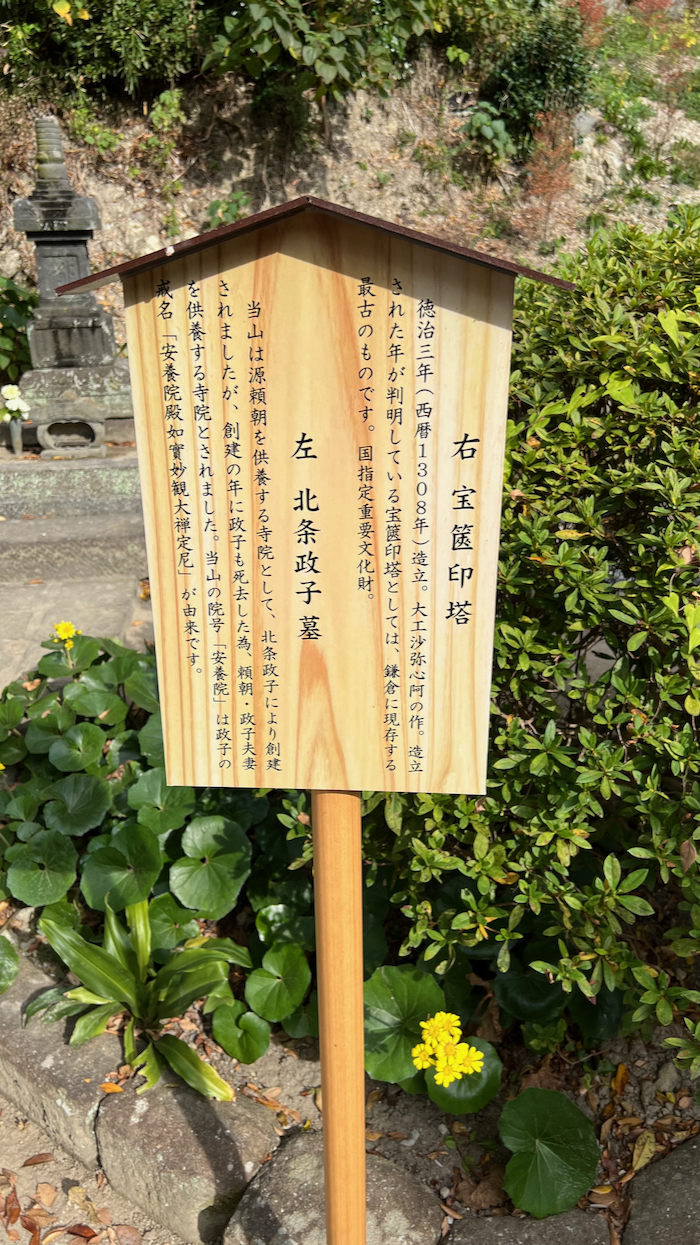 右 宝篋印塔
徳治三年(西暦1308年)造立。大工沙弥心阿の作。造立
された年が判明している宝篋印塔としては、鎌倉に現存する
最古のものです。国指定重要文化財。
左 北条政子墓
当山は源頼朝を供養する寺院として、北条政子により創建
されましたが、創建の年に政子も死去した為、頼朝・政子夫妻
を供養する寺院とされました。当山の院号「安養院」は政子の
戒名「安養院殿如實妙観大禅定尼」が由来です。